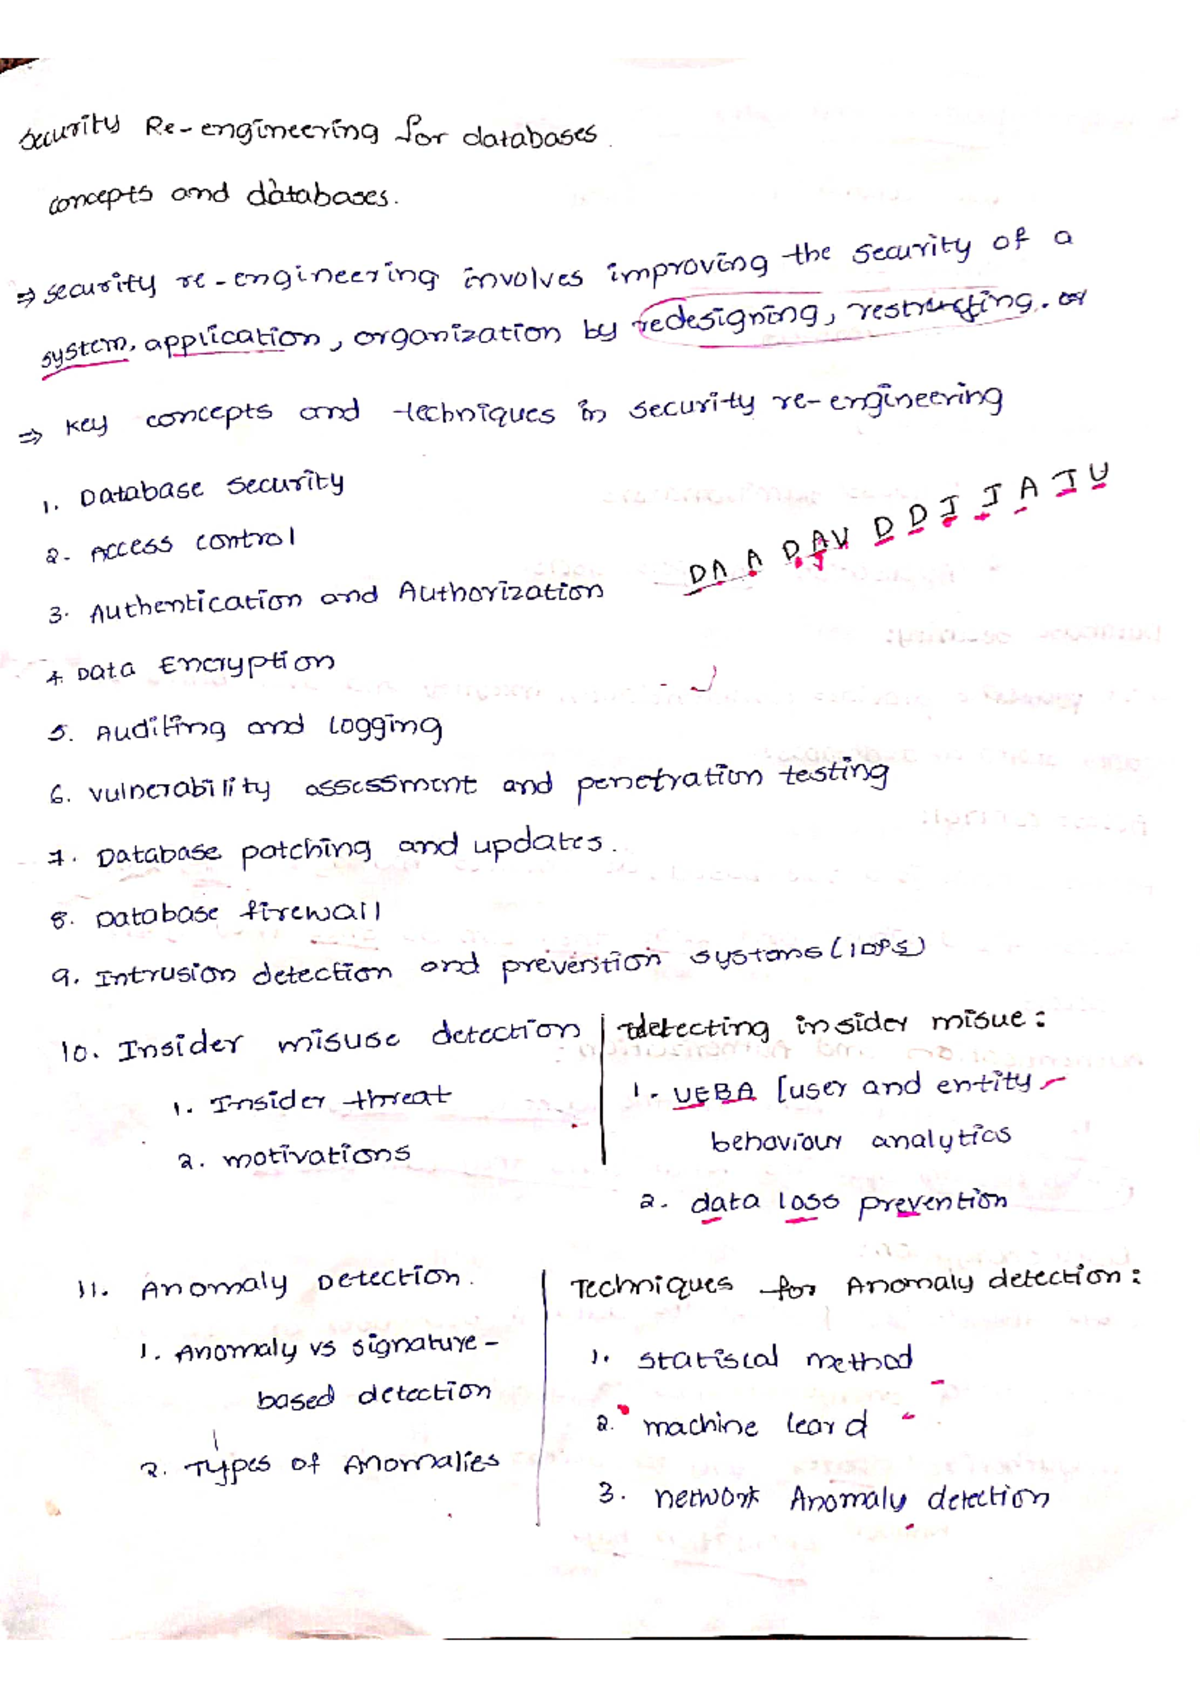 Security Re-engineering for databases.
concepts and databases.
⇒ security re-engineering involves improving the security of a
system, application, organization by redesigning, restructing. or
⇒ key concepts and techniques in security re-engineering
1. Database security
2. Access control
3. Authentication and Authorization
4. Data Encryption
5. Auditing and logging
6. vulnerability assessment and penetration testing
7. Database patching and updates.
8. Database firewall
9. Intrusion detection and prevention systems (IDPS)
10. Insider misuse detection
1. Insider threat
2. motivations
detecting insider misue:
1. UEBA [user and entity
behaviour analytics
2. data loss prevention
11. Anomaly Detection.
1. Anomaly vs signature-
based detection
2. Types of Anomalies
Techniques for Anomaly detection:
1. statiscal method
2. machine
3. network Anomaly detection